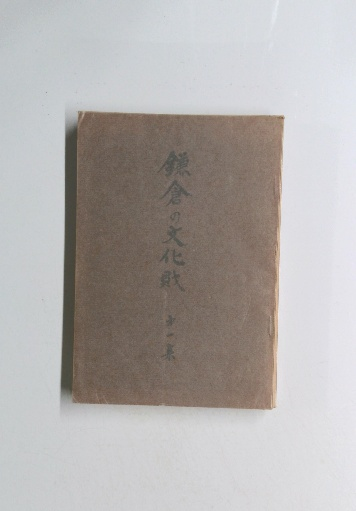 鎌倉の文化財
第一集